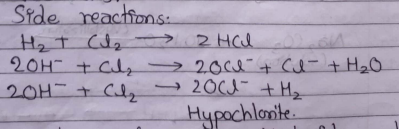 Side reactions:
H₂ + Cl₂ → 2HCl
2OH⁻ + Cl₂ → 2OCl⁻ + Cl⁻ + H₂O
2OH⁻ + Cl₂ → 2OCl⁻ + H₂
Hypochlorite.